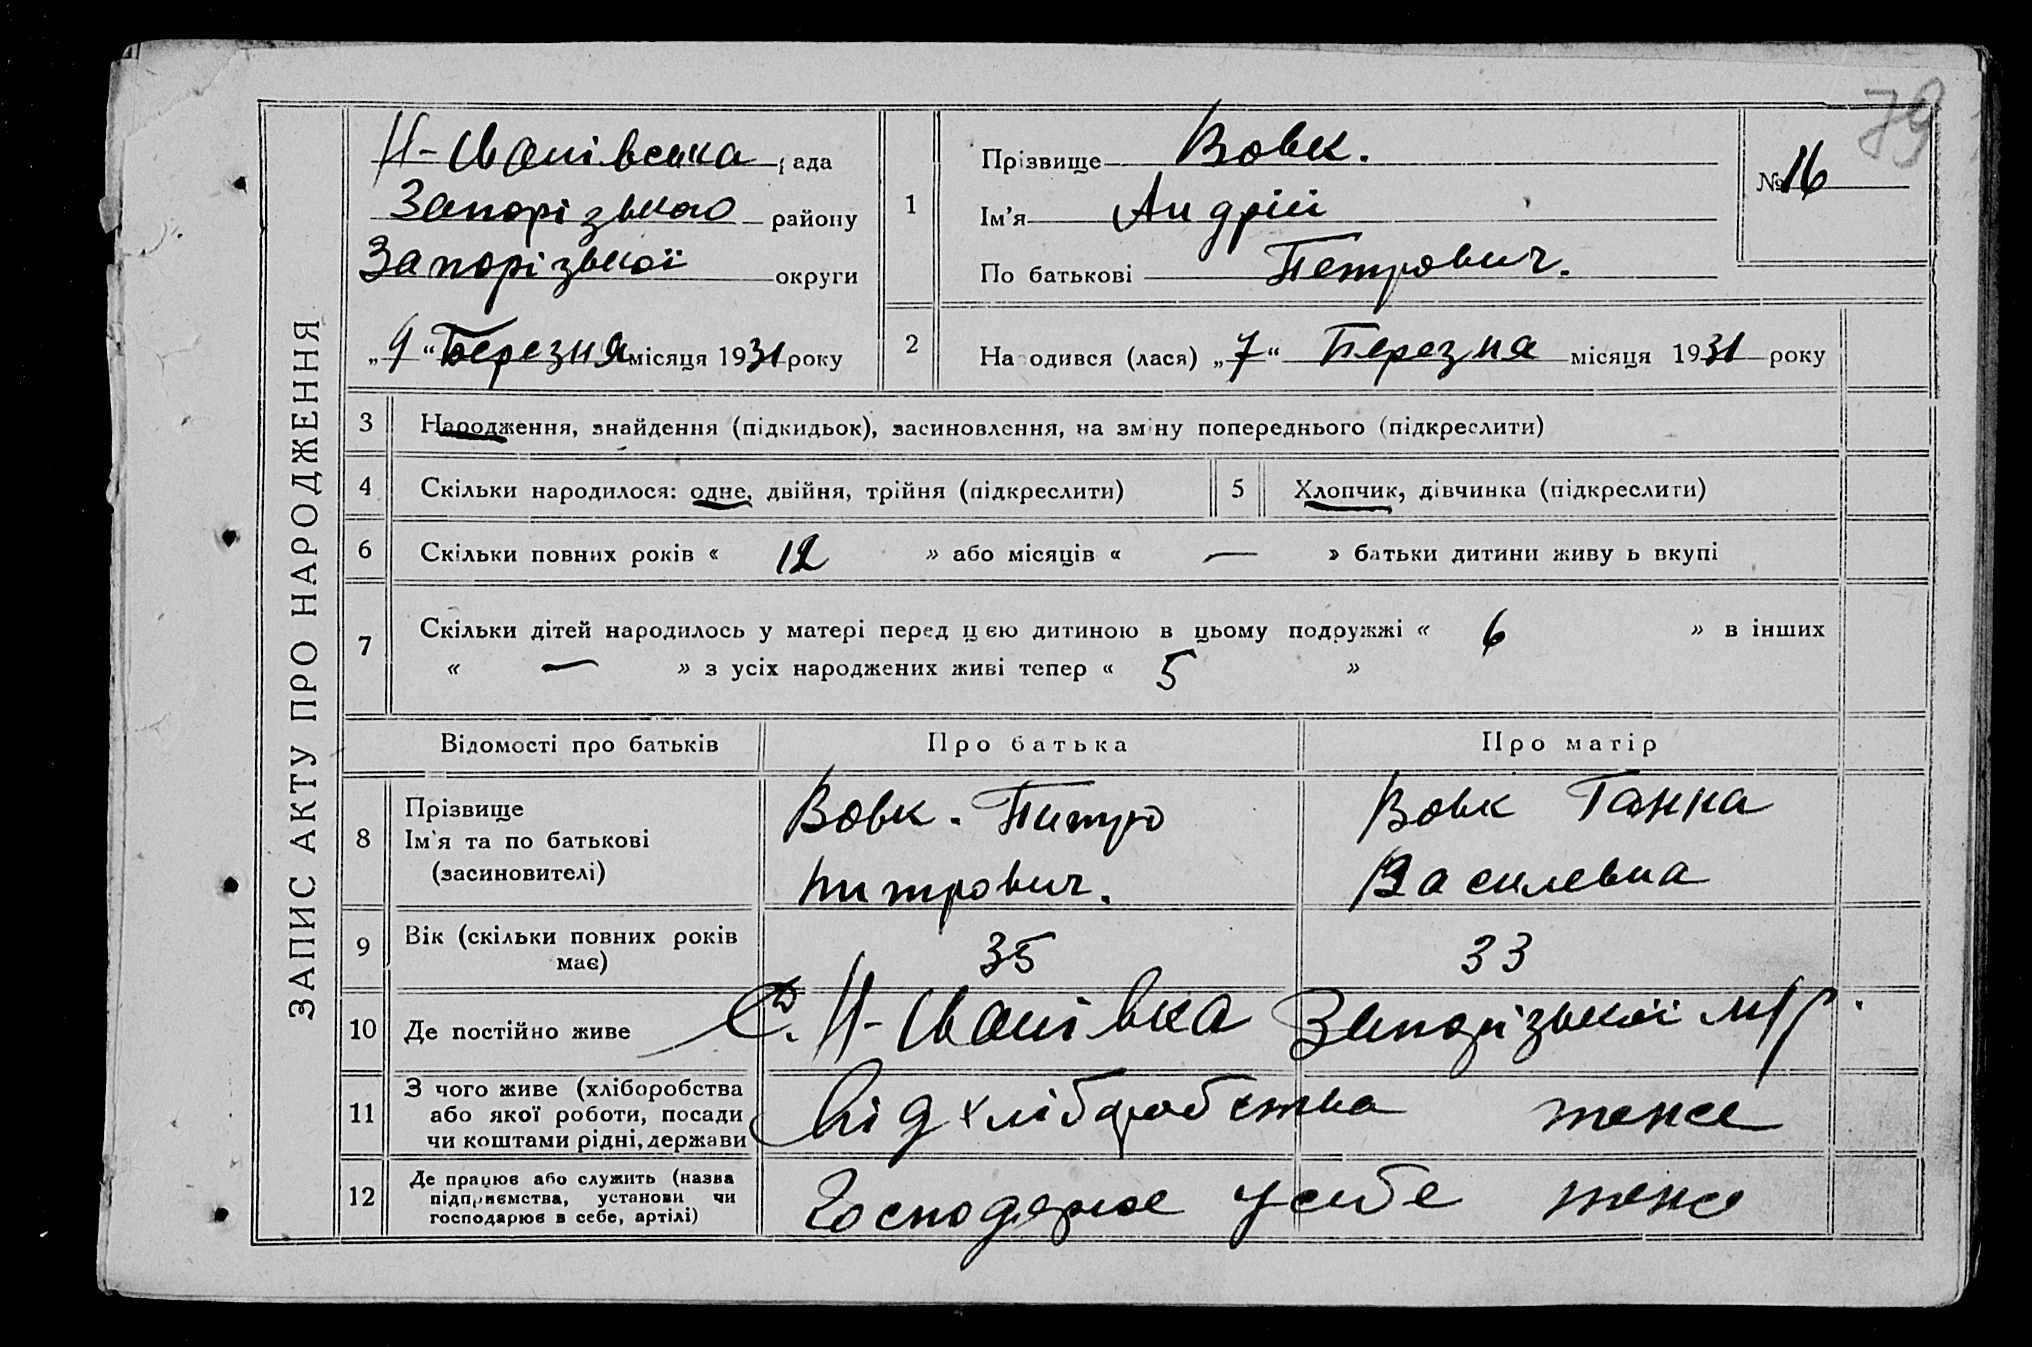 79
ЗАПИС АКТУ ПРО НАРОДЖЕННЯ
Н-Іванівська рада
Запорізького району
Запорізької округи
„9“ Березня місяця 1931 року
1
Прізвище Вовк.
Ім'я Андрій
По батькові Петрович.
№ 16
2
Народився (лася) „7“ Березня місяця 1931 року
3 Народження, знайдення (підкидьок), засиновлення, на зміну попереднього (підкреслити)
4 Скільки народилося: одне, двійня, трійня (підкреслити)
5 Хлопчик, дівчинка (підкреслити)
6 Скільки повних років « 12 » або місяців « — » батьки дитини живуть вкупі
7 Скільки дітей народилось у матері перед цією дитиною в цьому подружжі « 6 » в інших
« — » з усіх народжених живі тепер « 5 »
Відомості про батьків Про батька Про матір
8 Прізвище
Ім'я та по батькові
(засиновителі)
Вовк. Питро
питрович.
Вовк Ганна
Василевна
9 Вік (скільки повних років
має)
35 33
10 Де постійно живе С. Н-Іванівка Запорізької м/р.
11 З чого живе (хліборобства
або якої роботи, посади
чи коштами рідні, держави
Від хліборобства теже
12 Де працює або служить (назва
підприємства, установи чи
господарює в себе, артілі)
Господарює у себе теже